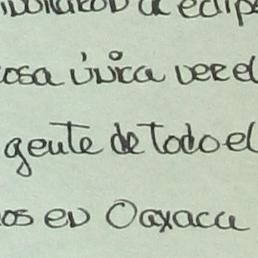 de eclip
osa única ver el
gente de todo el
os en Oaxaca